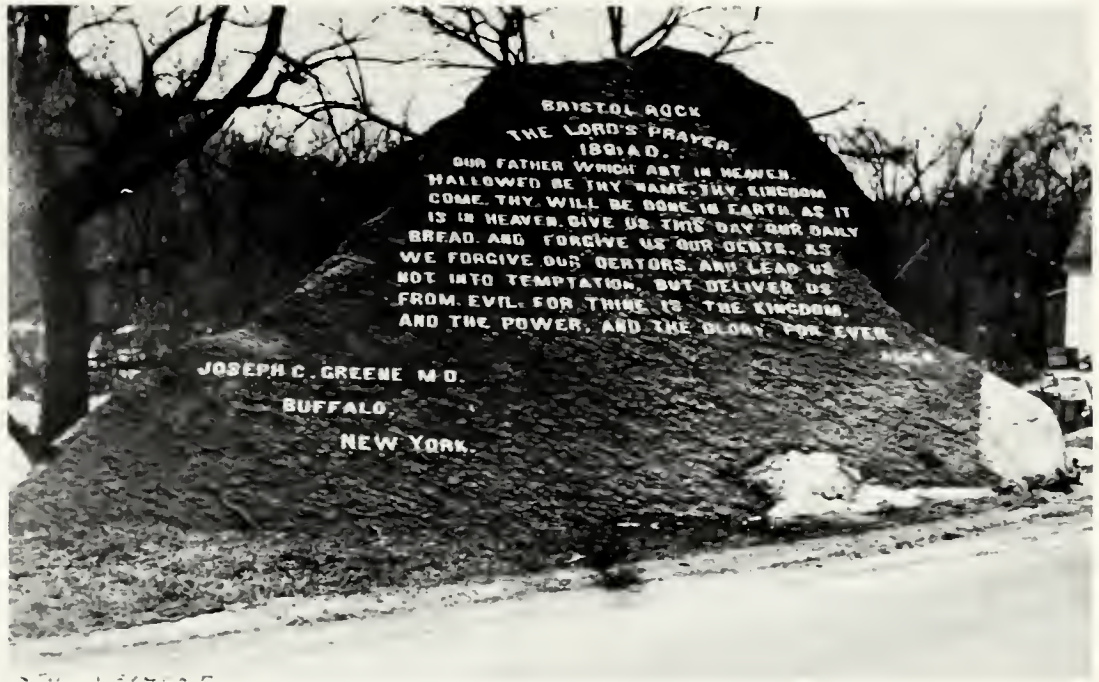 BRISTOL ROCK
THE LORD'S PRAYER.
1891 A.D.
OUR FATHER WHICH ART IN HEAVEN.
HALLOWED BE THY NAME. THY KINGDOM
COME. THY WILL BE DONE IN EARTH. AS IT
IS IN HEAVEN. GIVE US THIS DAY OUR DAILY
BREAD. AND FORGIVE US OUR DEBTS. AS
WE FORGIVE OUR DEBTORS. AND LEAD US
NOT INTO TEMPTATION, BUT DELIVER US
FROM EVIL. FOR THINE IS THE KINGDOM.
AND THE POWER, AND THE GLORY FOR EVER
JOSEPH C. GREENE M D.
BUFFALO,
NEW YORK.